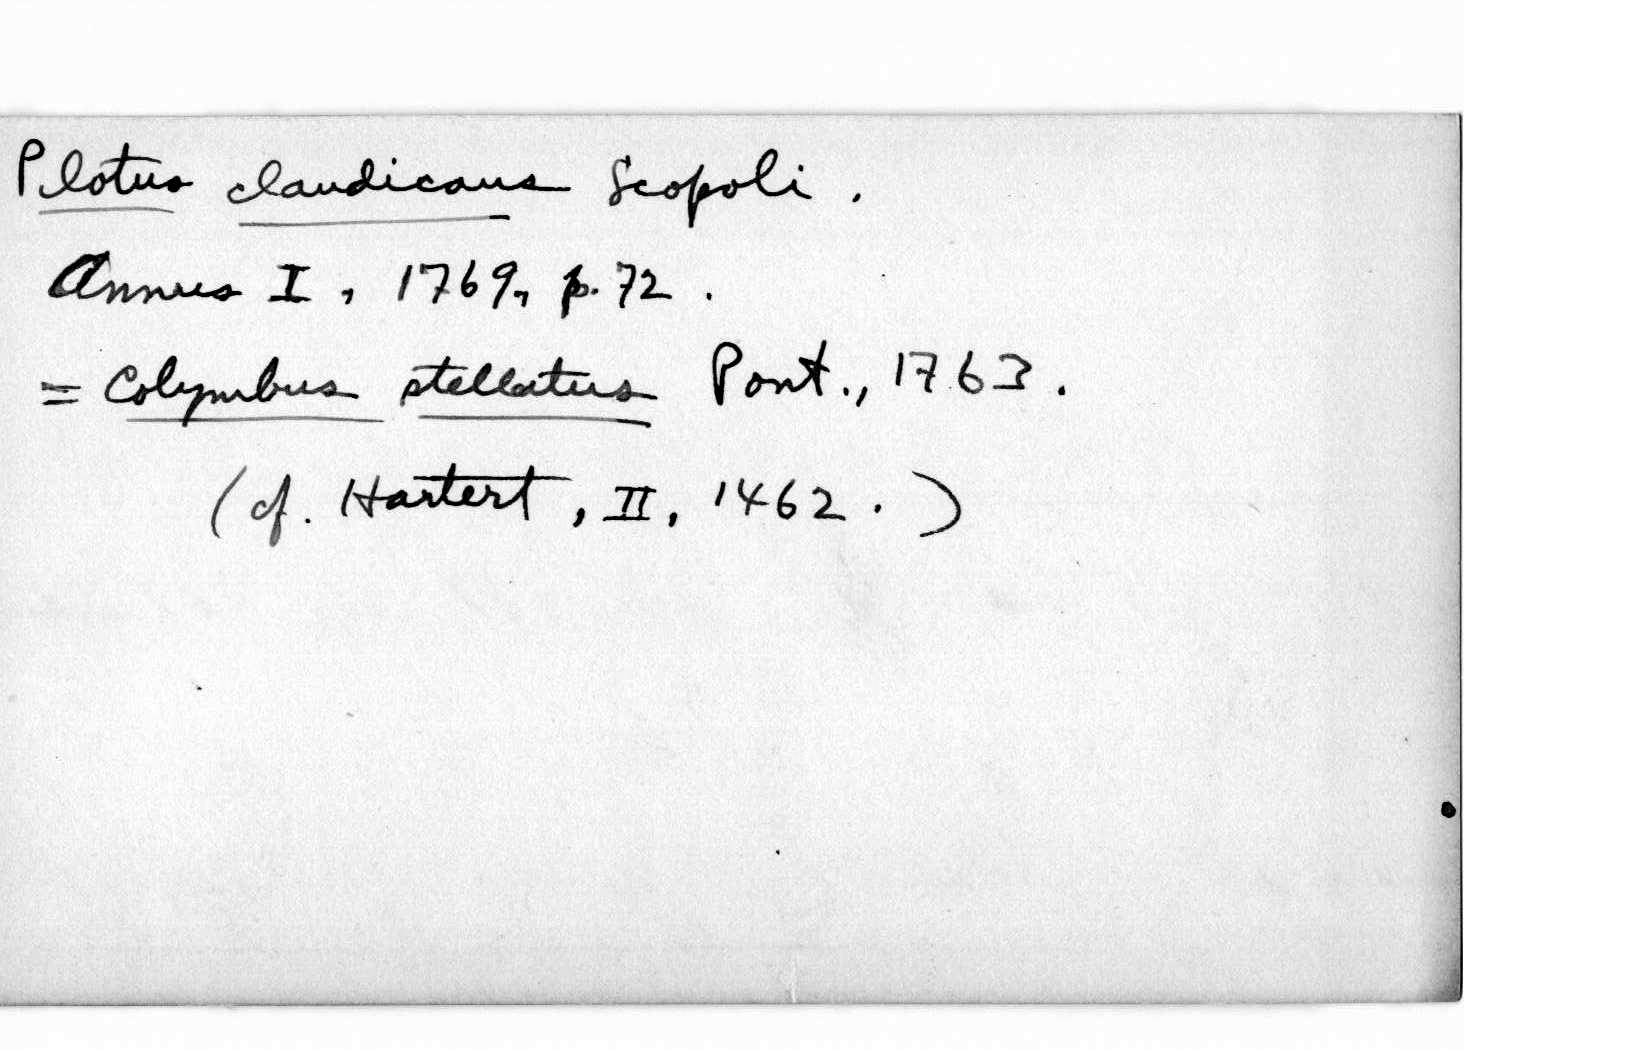 Plotus claudicans Scopoli.
Annus I, 1769, p. 72.
= Colymbus stellatus Pont., 1763.
(cf. Hartert, II, 1462.)